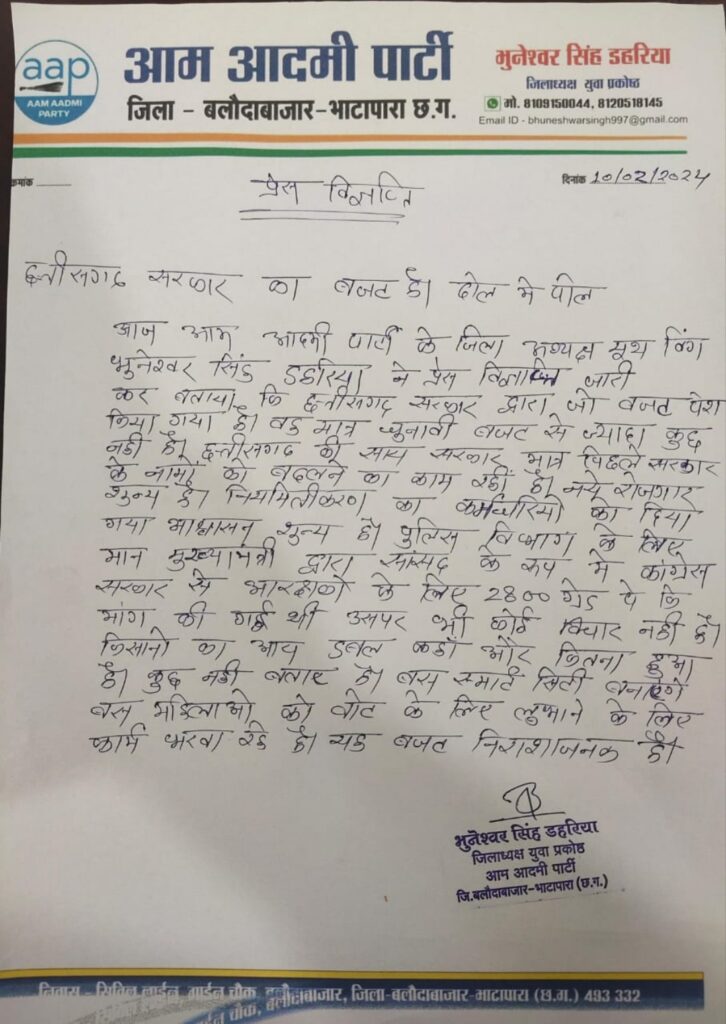 aap
AAM AADMI
PARTY
आम आदमी पार्टी
जिला - बलौदाबाजार-भाटापारा छ.ग.
भुनेश्वर सिंह डहरिया
जिलाध्यक्ष युवा प्रकोष्ठ
मो. 8109150044, 8120518145
Email ID - bhuneshwarsingh997@gmail.com
क्रमांक
दिनांक 10/02/2024
प्रेस विज्ञप्ति
छत्तीसगढ़ सरकार का बजट है। ढोल मे पोल
आज आम आदमी पार्टी के जिला अध्यक्ष यूथ विंग
भुनेश्वर सिंह डहरिया ने प्रेस विज्ञप्ति जारी
कर बताया कि छत्तीसगढ़ सरकार द्वारा जो बजट पेश
किया गया है। वह मात्र चुनावी बजट से ज्यादा कुछ
नही है। छत्तीसगढ़ की साय सरकार मात्र पिछले सरकार
के नामों को बदलने का काम रही है। नये रोजगार
शुन्य है। नियमितीकरण का कर्मचारियो को दिया
गया आश्वासन शुन्य है। पुलिस विभाग के लिए
मान मुख्यमंत्री द्वारा सांसद के रूप मे कांग्रेस
सरकार से आरक्षको के लिए 2800 ग्रेड पे कि
मांग की गई थी उसपर भी कोई विचार नही है।
किसानो का आय डबल कहाँ और कितना हुआ
है। कुछ नही बताए है। बस स्मार्ट सिटी बनाएंगे
बस महिलाओ को वोट के लिए लुभाने के लिए
फार्म भरवा रहे है। यह बजट निराशाजनक है।
भुनेश्वर सिंह डहरिया
जिलाध्यक्ष युवा प्रकोष्ठ
आम आदमी पार्टी
जि.बलौदाबाजार-भाटापारा (छ.ग.)
निवास - सिविल लाईन, गार्डन चौक, बलौदाबाजार, जिला-बलौदाबाजार-भाटापारा (छ.ग.) 493 332